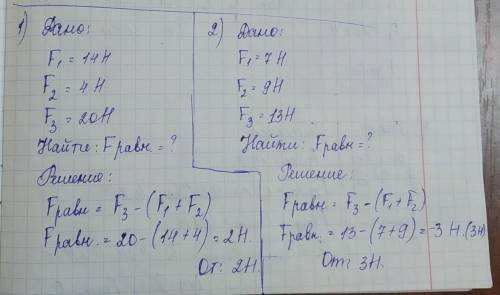 1) Дано:
F₁ = 14 Н
F₂ = 4 Н
F₃ = 20 Н
Найти: F равн = ?
Решение:
F равн = F₃ - (F₁ + F₂)
F равн. = 20 - (14 + 4) = 2 Н.
От: 2 Н.
2) Дано:
F₁ = 7 Н
F₂ = 9 Н
F₃ = 13 Н
Найти: F равн = ?
Решение:
F равн. = F₃ - (F₁ + F₂)
F равн. = 13 - (7 + 9) = -3 Н. (3 Н)
От: 3 Н.